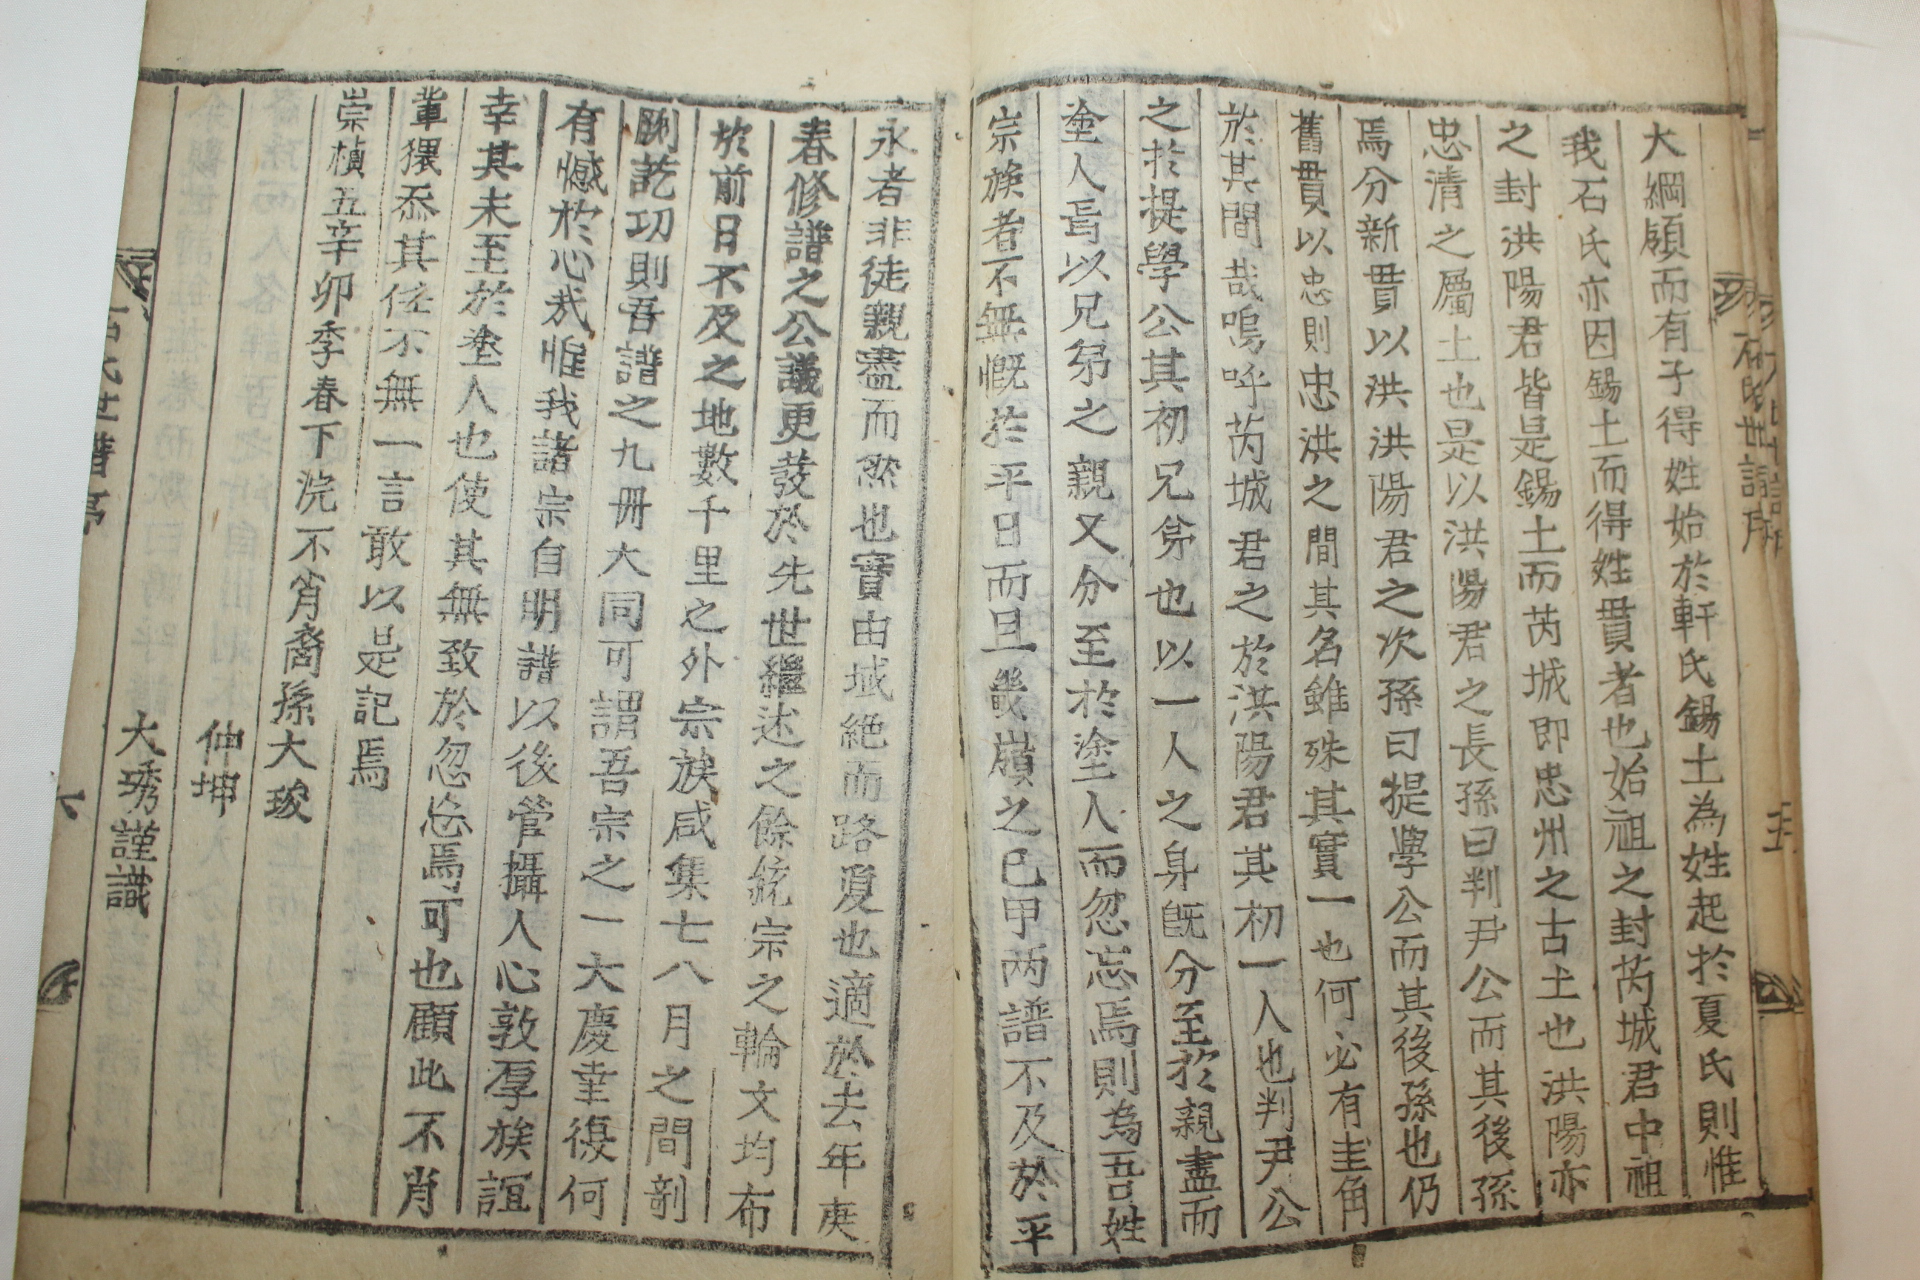 大綱領而有子得姓始於軒氏錫土為姓起於夏氏則惟
我石氏亦因錫土而得姓貫者也始祖之封芮城君中祖
之封洪陽君皆是錫土而芮城即忠州之古土也洪陽亦
忠清之屬土也是以洪陽君之長孫曰判尹公而其後孫
焉分新貫以洪洪陽君之次孫曰提學公而其後孫也仍
舊貫以忠則忠洪之間其名雖殊其實一也何必有圭角
於其間哉嗚呼芮城君之於洪陽君其初一人也判尹公
之於提學公其初兄弟也以一人之身既分至於親盡而
塗人焉以兄弟之親又分至於塗人而忽忘焉則為吾姓
宗族者不無慨於平日而旦幾嶺之已甲两譜不及於平
永者非徒親盡而然也實由域絶而路夐也適於去年庚
春修譜之公議更發於先世繼述之餘統宗之輪文均布
於前日不及之地數千里之外宗族咸集七八月之間剞
劂訖功則吾譜之九冊大同可謂吾宗之一大慶幸復何
有憾於心哉惟我諸宗自明譜以後管攝人心敦厚族誼
幸其未至於塗人也使其無致於忽忘焉可也顧此不肖
輩猥忝其任不無一言敢以是記焉
崇禎五辛卯季春下浣不肖裔孫大駿
仲坤
大琇謹識
石氏世譜序
六
石氏世譜序
五